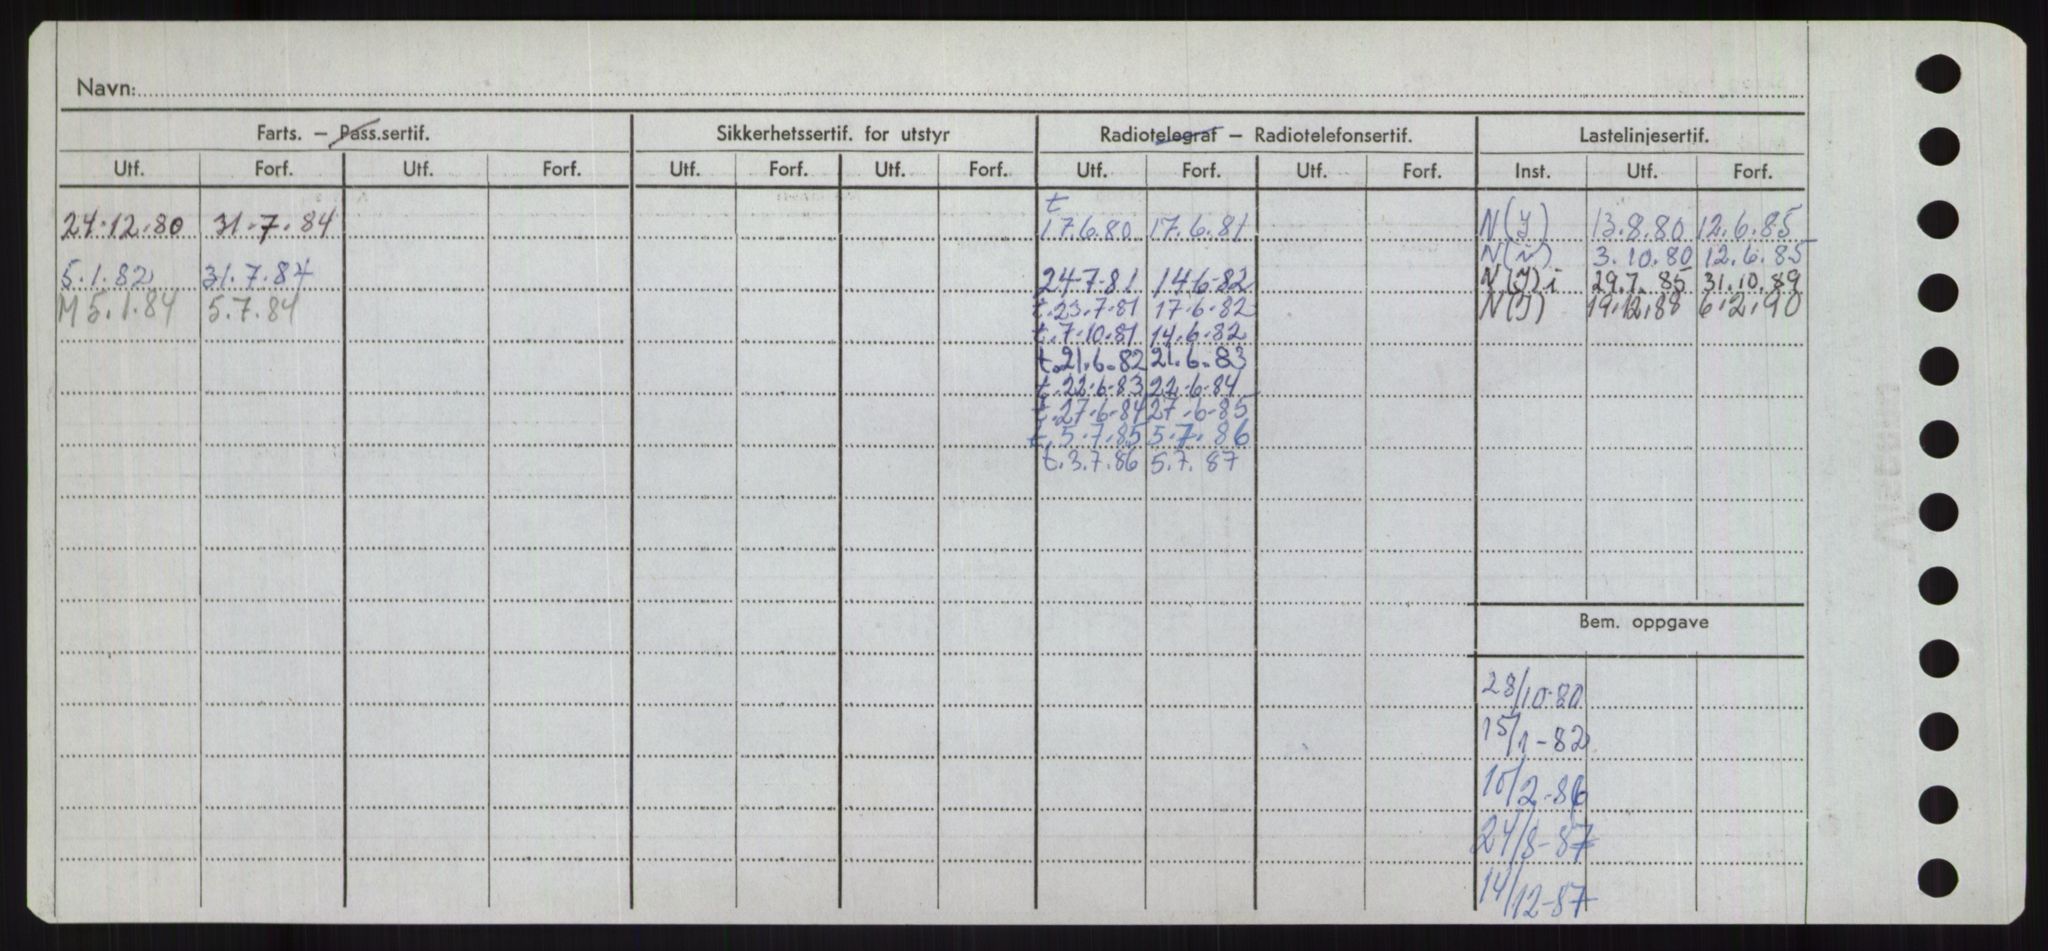 Navn:
Farts. – Pass.sertif. Sikkerhetssertif. for utstyr Radiotelegraf – Radiotelefonsertif. Lastelinjesertif.
Utf. Forf. Utf. Forf. Utf. Forf. Utf. Forf. Utf. Forf. Utf. Forf. Inst. Utf. Forf.
t
24.12.80 31.7.84 17.6.80 17.6.81 N(Y) 13.8.80 12.6.85
N( ) 3.10.80 12.6.85
5.1.82 31.7.84 24-7-81 14-6-82 N(Y) i 29.7.85 31.10.89
M 5.1.84 5.7.84 t.23.7-81 17-6-82 N(Y) 19.12.88 6.2.90
t.7-10.81 14.6.82
t.21.6.82 21.6.83
t.22.6.83 22.6.84
t.27.6.84 27.6.85
t.5.7.85 5.7.86
t.3.7.86 5.7.87
Bem. oppgave
28/10-80
15/1-82
10/2-86
24/8-87
14/12-87